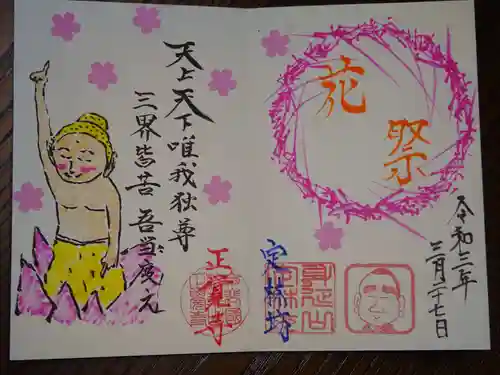 花祭
令和三年
三月二十七日
身延山
定林坊
天上天下唯我独尊
三界皆苦 吾当度之
正覚寺